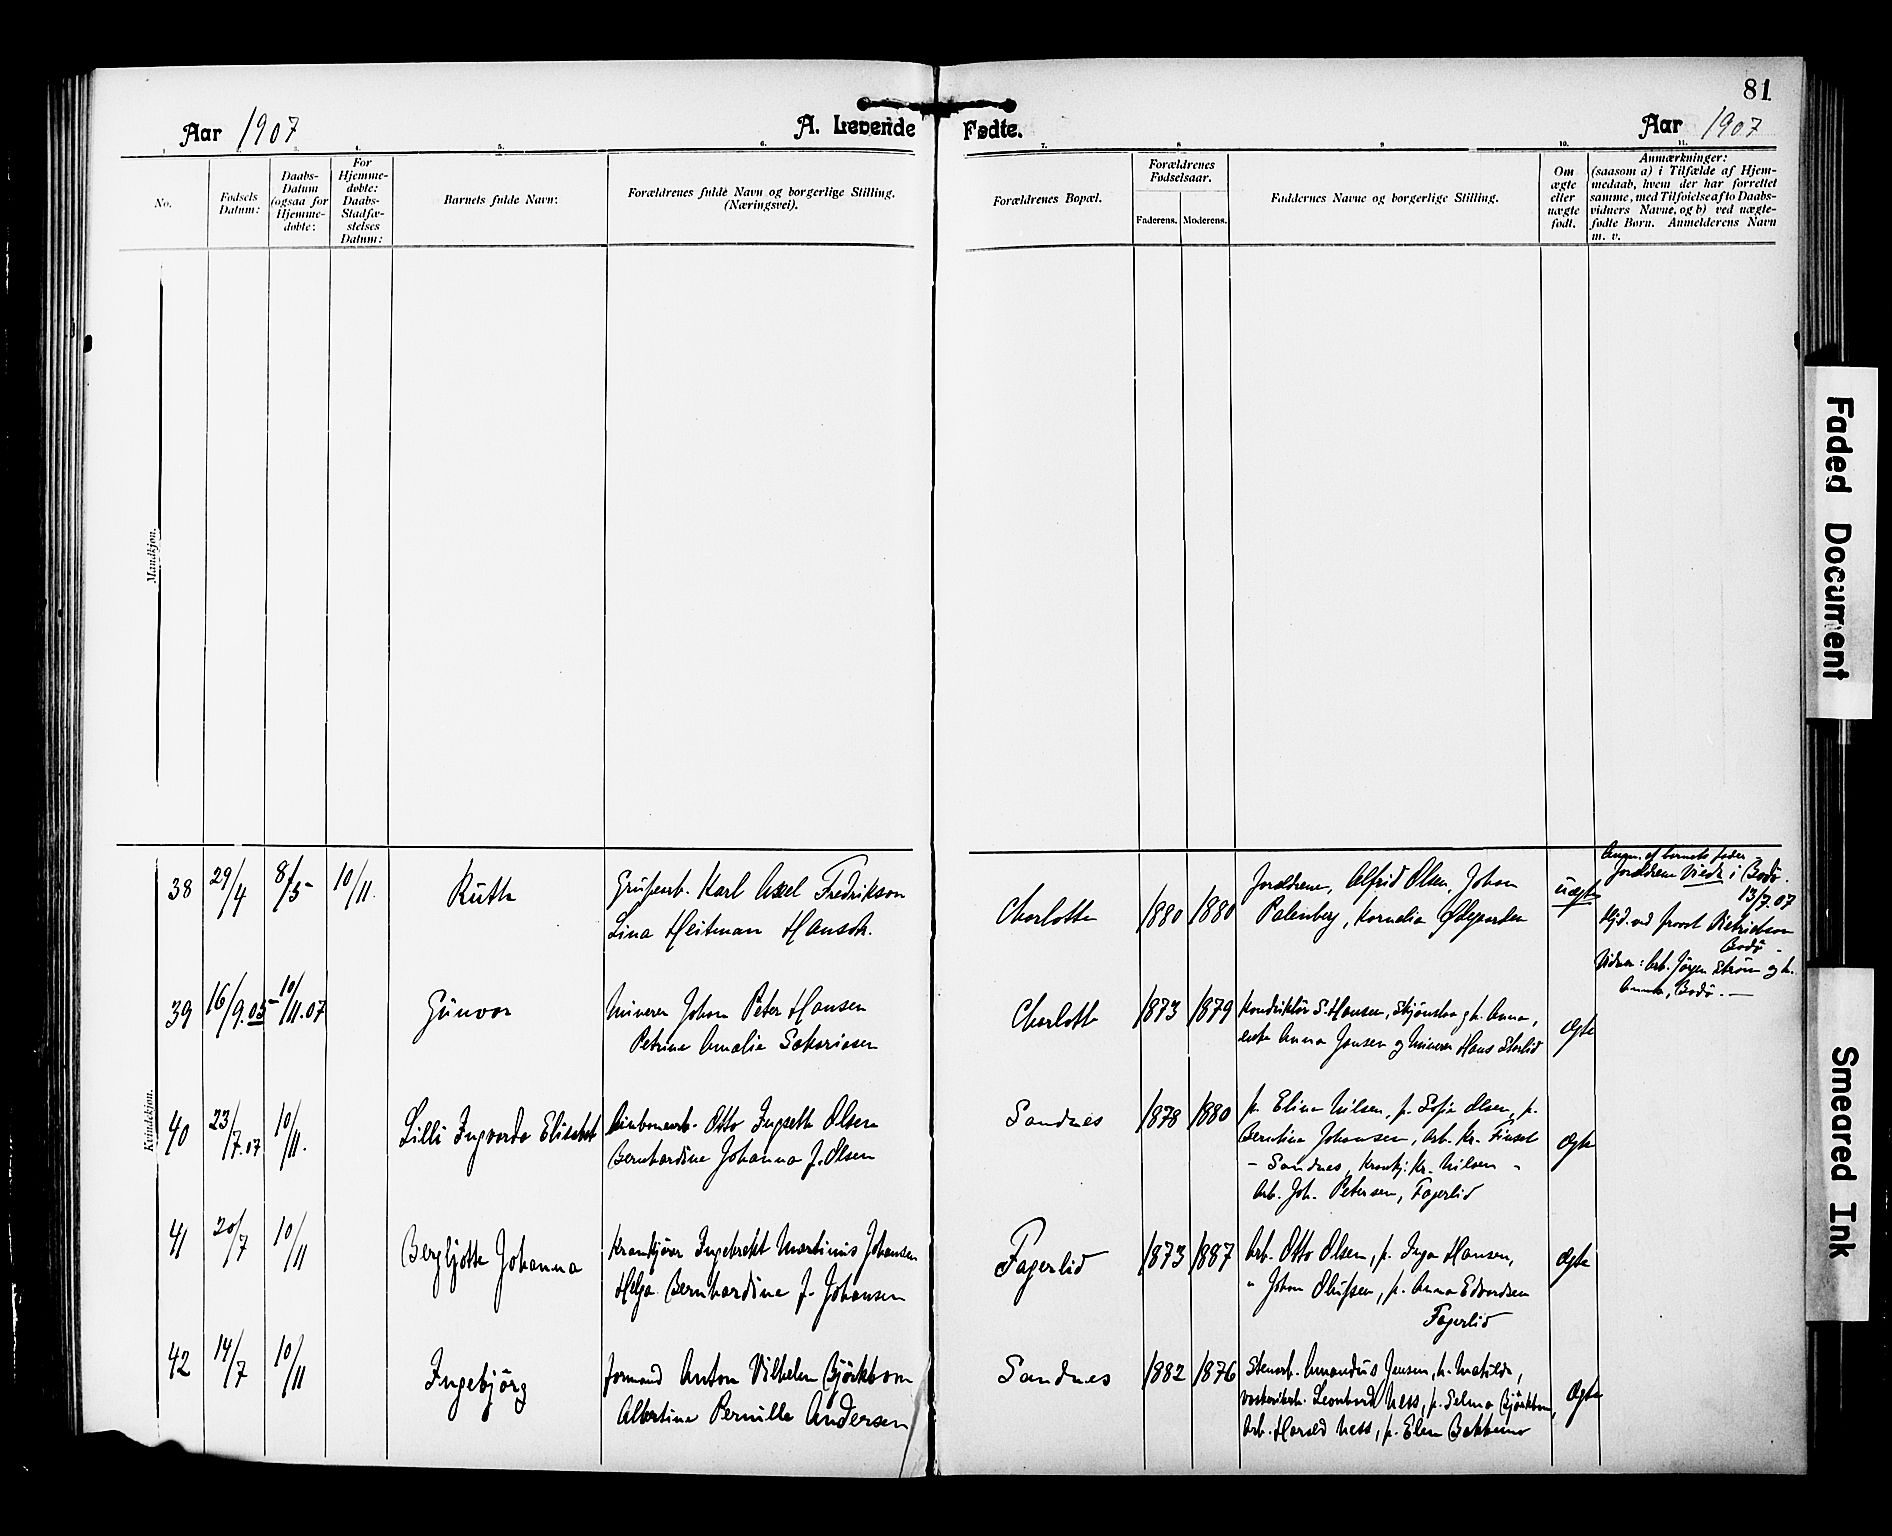 81
Aar 1907
A. Levende Fødte.
Aar 1907
1. 2. 3. 4. 5. 6. 7. 8. 9. 10. 11.
No.
Fødsels
Datum:
Daabs-
Datum
(ogsaa for
Hjemme-
døbte:
For
Hjemme-
døbte:
Daabs-
Stadfæ-
stelses
Datum:
Barnets fulde Navn:
Forældrenes fulde Navn og borgerlige Stilling.
(Næringsvei).
Forældrenes Bopæl.
Forældrenes
Fødselsaar.
Faderens. Moderens.
Faddernes Navne og borgerlige Stilling.
Om
ægte
eller
uægte
født.
Anmærkninger:
(saasom a) i Tilfælde af Hjem-
medaab, hvem der har forrettet
samme, med Tilføielse af to Daabs-
vidners Navne, og b) ved uægte-
fødte Børn. Anmelderens Navn
m. v.
Mandkjøn.
Kvindekjøn.
38
29/4
8/5
10/11.
Ruth
Karl Axel Fredrikson
Lina Heitman Hansdt.
Charlotta
1880
1880
Forældrene, Alfrid Olsen, Johan
Palenberg, Kornelia Ødegaarden
uægte
Angm. af barnets fader
Forældrene viede i Bodø.
13/7.07
Hjd. ved provst
Bodø.
Vidner: Arb. Jørgen Strøm og h.
Anna, Bodø.
39
16/9.05
10/11.07
Gunvor
Minerer Johan Peter Hansen
Petrine Amalie Sakariasen
Charlotta
1873
1879
Konduktør S. Hansen, og h. Anna,
enke Anna Jansen og Minerer Hans Storlid
ægte
40
23/7.07
10/11.
Lilli Ingvarda Elisabet
Otto Ingseth Olsen
Bernhardine Johanna f. Olsen
Sandnes
1878
1880
p. Elina Nilsen, p. Sofie Olsen, p.
Berntine Johansen, Arb. Kr. Finset
- Sandnes, Kr. Nilsen -
Arb. Joh. Petersen, Fagerlid
ægte
41
20/7
10/11
Bergljotte Johanna
Krankjører Ingebrekt Martinus Johansen
Helga Bernhardine f. Johansen
Fagerlid
1873
1887
Arb. Otto Olsen, p. Inga Hansen,
" Johan Olufsen, p. Anna Edvardsen
Fagerlid
ægte
42
14/7
10/11
Ingebjørg
Formand Anton Vilhelm Bjørkbom
Albertine Pernille Andersen
Sandnes
1882
1876
Stenarb. Amandus Jensen, h. Matilde,
Leonhard Ness, p. Selma Bjørkbom,
Arb. Harald Ness, p. Elen Bakkemo
ægte
Faded Document
Smeared Ink